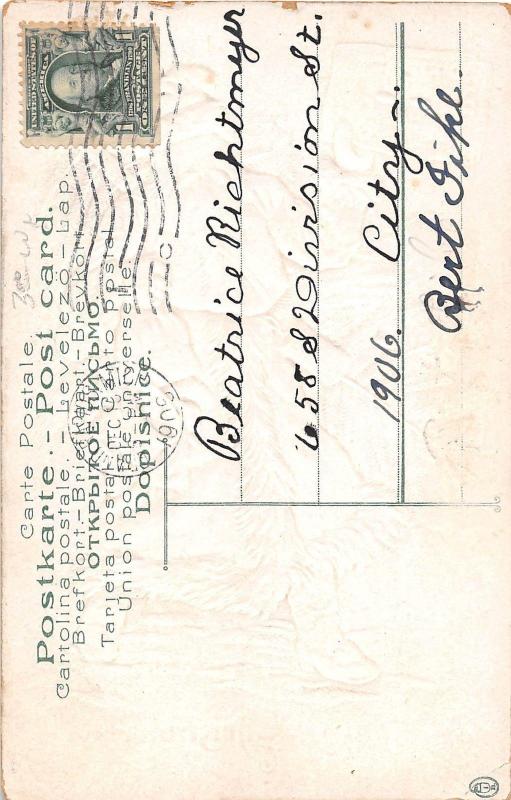 Carte Postale.
Postkarte. - Post card.
Cartolina postale. - Levelező-Lap.
Brefkort.-Briefkaart.-Brevkort.
ОТКРЫТОЕ ПИСЬМО.
Tarjeta postal. Carto postal
Union postale universelle.
Dopisnice.
UNITED STATES OF AMERICA
FRANKLIN
ONE CENT
1906
Beatrice Richtmyer
658 S Division St.
City.
1906.
Bert Fihe.